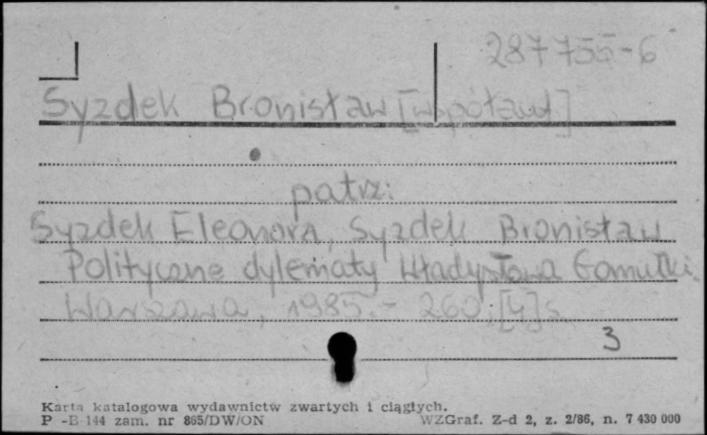 287755-6
Syzdek Bronisław [współaut]
patrz:
Syzdek Eleonora, Syzdek Bronisław
Polityczne dylematy Władysława Gomułki.
Warszawa, 1985.- 260,[4]s.
3
Karta katalogowa wydawnictw zwartych i ciągłych.
P -B-144 zam. nr 865/DW/ON WZGraf. Z-d 2, z. 2/86, n. 7 430 000